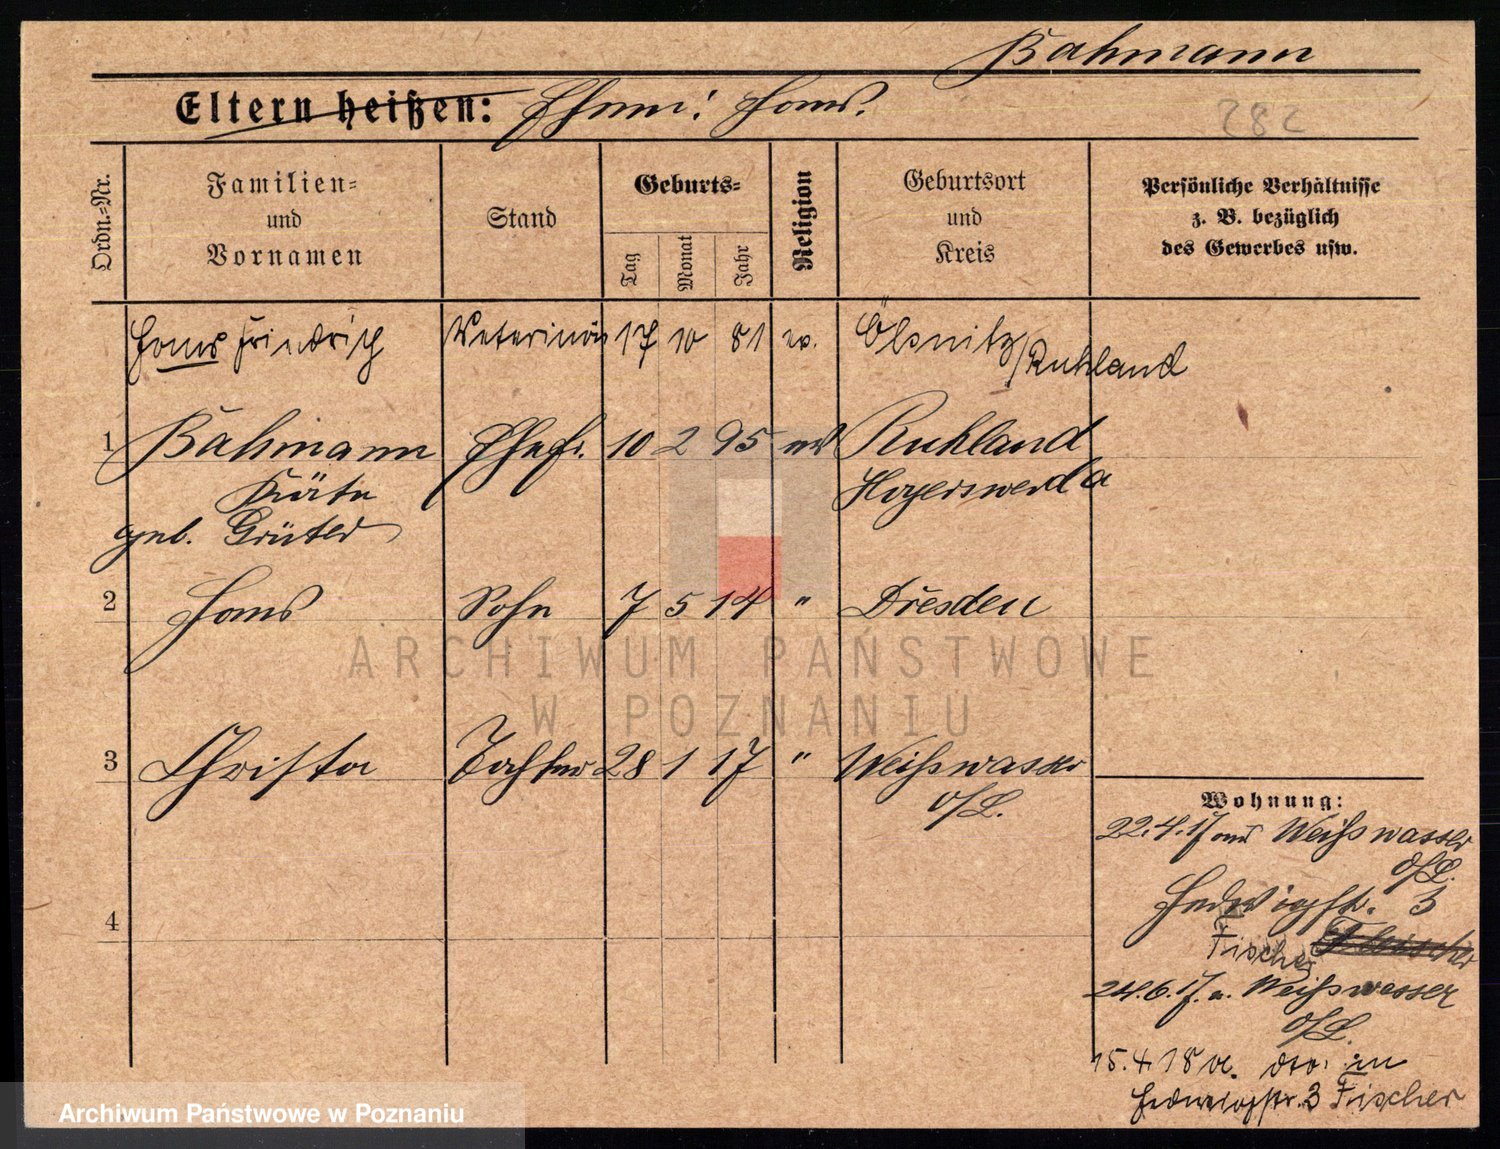 Bahmann
Eltern heißen: Ehem: Hans.
282
Ordn=Nr.
Familien=
und
Vornamen
Stand
Geburts=
Tag
Monat
Jahr
Religion
Geburtsort
und
Kreis
Persönliche Verhältnisse
z. B. bezüglich
des Gewerbes usw.
Hans Friedrich Veterinär 17 10 81 ev. Ölsnitz/Ruhland
1 Bahmann Ehefr. 10 2 95 ev Ruhland
Käte Hoyerswerda
geb. Grüter
2 Hans Sohn 7 5 14 " Dresden
ARCHIWUM PAŃSTWOWE
W POZNANIU
3 Christa Tochter 28 1 17 " Weißwasser
o/L.
4
Wohnung:
22.4.17 aus Weißwasser
o/L.
Hedwigstr. 3
Fischer Fleischer
24.6.17. n. Weißwasser
o/L.
15.4.18 v. dto. in
Hedwigstr. 3 Fischer
Archiwum Państwowe w Poznaniu